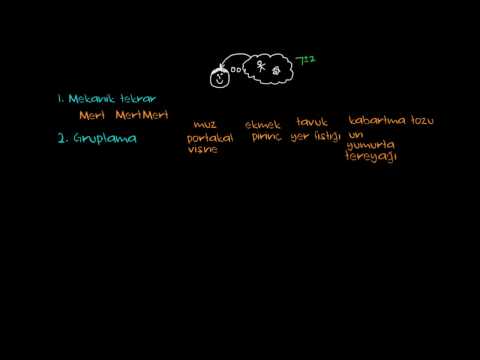 7±2
1. Mekanik tekrar
Mert Mert Mert
muz ekmek tavuk kabartma tozu
2. Gruplama portakal pirinç yer fıstığı un
vişne yumurta
tereyağı